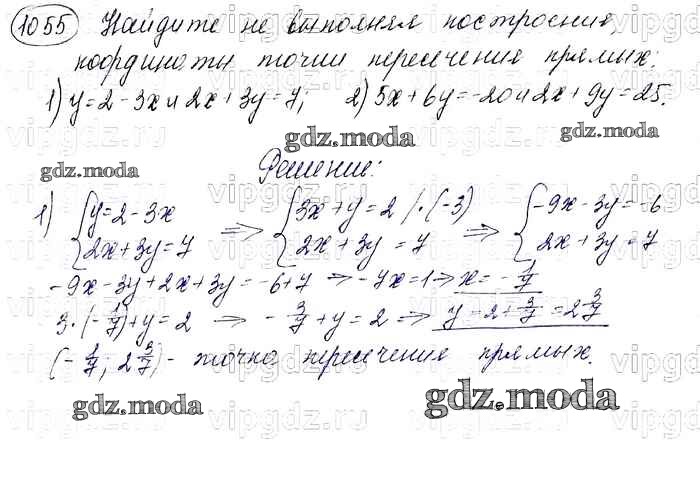 1055 Найдите не выполняя построения,
координаты точки пересечения прямых:
1) y=2-3x и 2x+3y=7; 2) 5x+6y=-20 и 2x+9y=25.
gdz.moda
gdz.moda
gdz.moda
Решение:
1) {y=2-3x {3x+y=2 /·(-3) {-9x-3y=-6
{2x+3y=7 => {2x+3y=7 => {2x+3y=7
-9x-3y+2x+3y=-6+7 => -7x=1 => x=-1/7
3·(-1/7)+y=2 => -3/7+y=2 => y=2+3/7=2 3/7
(-1/7; 2 3/7) - точка пересечения прямых.
gdz.moda
gdz.moda